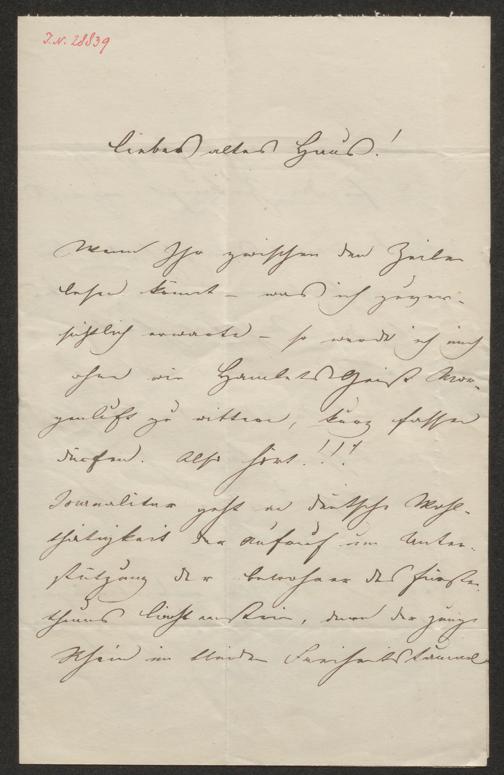 J.N. 28839
Liebes altes Haus!
Wenn Ihr zwischen den Zeilen
lesen könnt – was ich zuver-
sichtlich erwarte – so werde ich mich
ohne wie Hamlets Geist Mor-
genluft zu wittern, kurz fassen
dürfen. Also hört!!!
geht an deutsche Wohl-
thätigkeit der Aufruf um Unter-
stützung der Bewohner des Fürsten-
thums Liechtenstein, denen der junge
Rhein im Freiheitstaumel